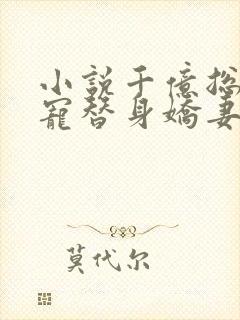 小说千億総
寵替身嬌妻
莫代尔